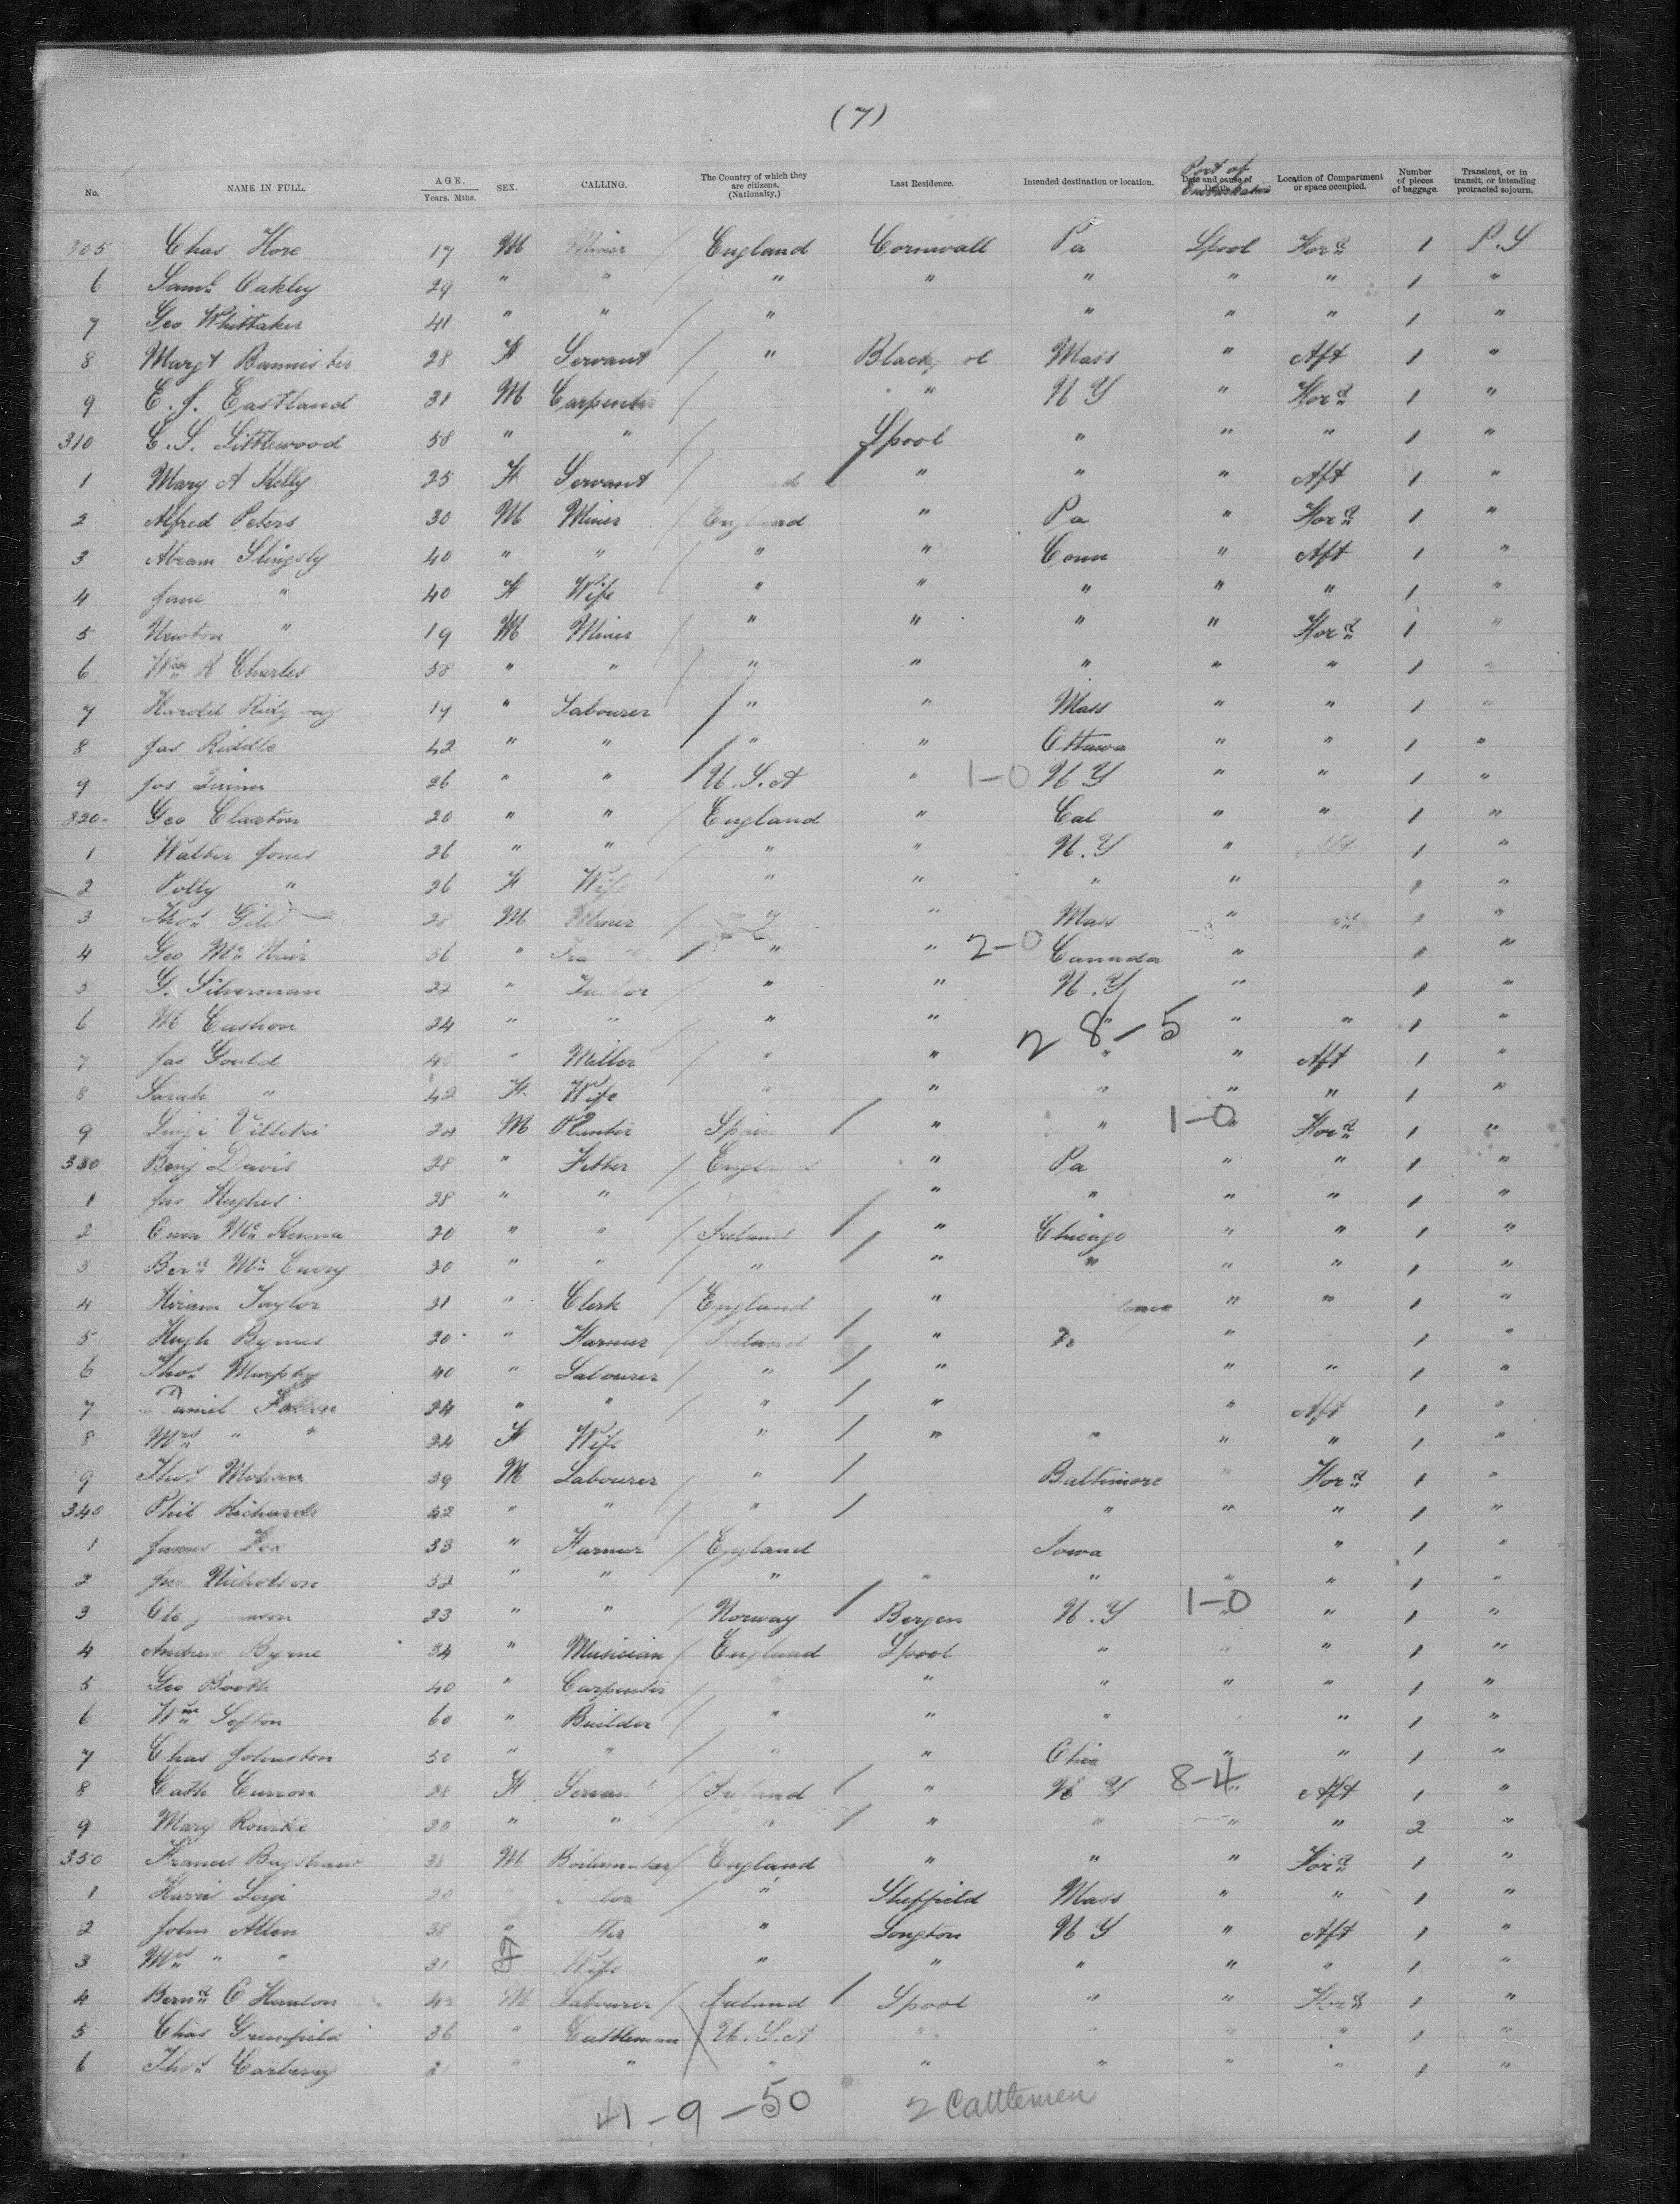 (7)
No. NAME IN FULL. AGE. Years. Mths. SEX. CALLING. The Country of which they are citizens. (Nationalty.) Last Residence. Intended destination or location. Port of Embarkation Location of Compartment or space occupied. Number of pieces of baggage. Transient, or in transit, or intending protracted sojourn.
305 Chas Hore 17 M Miner / England Cornwall Pa Lpool For'd 1 P.S
6 Saml Oakley 29 " " / " " " " " 1 "
7 Geo Whittaker 41 " " / " " " " 1 "
8 Margt Bannister 28 F Servant / " Mass " Aft 1 "
9 E. J. Eastland 31 M Carpenter / " N Y " For'd 1 "
310 C. S. Littlewood 58 " " / Lpool " " " 1 "
1 Mary A Kelly 25 F Servant / " " " Aft 1 "
2 Alfred Peters 30 M Miner / England " Pa " For'd 1 "
3 Abram Slingsby 40 " " / " " Conn " Aft 1 "
4 Jane " 40 F Wife / " " " " " 1 "
5 Newton " 19 M Miner / " " " " For'd 1 "
6 Wm R Charles 58 " " / " " " " " 1 "
7 Harold 19 " Labourer / " " Mass " " 1 "
8 Jas Riddle 42 " " / " " Ottawa " " 1 "
9 Jos Quinn 26 " " / U.S.A " 1-0 N Y " " 1 "
320 Geo Claxton 20 " " England " Cal " " 1 "
1 Walter Jones 26 " " " " N.Y " 1 "
2 Polly " 26 F Wife " " " " "
3 Thos 28 M Miner " Mass " "
4 Geo Mc Nair 36 " / " " 2-0 Canada " "
5 G. Silverman 22 " Tailor / " " N.Y " 1 "
6 M Cashon 24 " " " " " " " 1 "
2 8-5
7 Jas Gould " Miller / " " " " Aft 1 "
8 Sarah " 42 F Wife " " " " " 1 "
9 Luigi Villetri 24 M Spain / " " 1-0 " For'd 1 "
330 Benj Davis 28 " Fitter / England " Pa " " 1 "
1 Jno Hughes 28 " " / " " " " 1 "
2 Owen Mc Kenna 20 " " / Ireland / " Chicago " " 1 "
3 Bernd Mc Curry 20 " " / " / " " " " 1 "
4 Hiram Taylor 31 " Clerk / England " " " 1 "
5 Hugh Byrnes 20 " Farmer / Ireland / " " 1 "
6 Thos Murphy 40 " Labourer / " / " " " 1 "
7 Daniel 24 " " / " / " " Aft 1 "
8 Mrs " " 24 F Wife " / " " " " 1 "
9 Thos 39 M Labourer " / Baltimore " For'd 1 "
340 Phil Richards 42 " " / " / " " " 1 "
1 James Fox 33 " Farmer / England Iowa " 1 "
2 Jno Nicholson 52 " " / " " " " " 1 "
3 33 " " / Norway / Bergen N.Y 1-0 " " 1 "
4 Andrew Byrne 34 " Musician / England Lpool " " " 1 "
5 Geo Booth 40 " Carpenter / " " " " " 1 "
6 Wm Sefton 60 " Builder / " " " " 1 "
7 Chas Johnston 50 " " / " " Ohio " " 1 "
8 Cath Curron 28 F Servant / Ireland / " N Y 8-4 " Aft 1 "
9 Mary Rourke 20 " " / " / " " " " 2 "
350 Francis Bagshaw 38 M Boilermaker / England " " " For'd 1 "
1 Harris 20 / " Sheffield Mass " " 1 "
2 John Allen 38 " " Longton N Y " Aft 1 "
3 Mrs " " 31 F Wife " " " " " 1 "
4 Bernd O Hanlon M Labourer / Ireland / Lpool " " For'd 1 "
5 Chas Greenfield 36 " Cattleman U.S.A " " " " 1 "
6 Thos Carberry " " " " " " " 1 "
41-9-50 2 Cattlemen